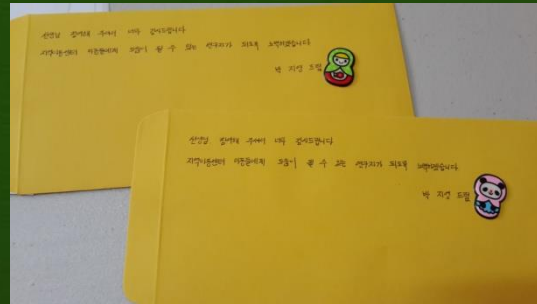 선생님 참여해 주셔서 너무 감사드립니다
지역아동센터 아동들에게 도움이 될 수 있는 연구자가 되도록 노력하겠습니다
박 지영 드림
선생님 참여해 주셔서 너무 감사드립니다
지역아동센터 아동들에게 도움이 될 수 있는 연구자가 되도록 노력하겠습니다.
박 지영 드림